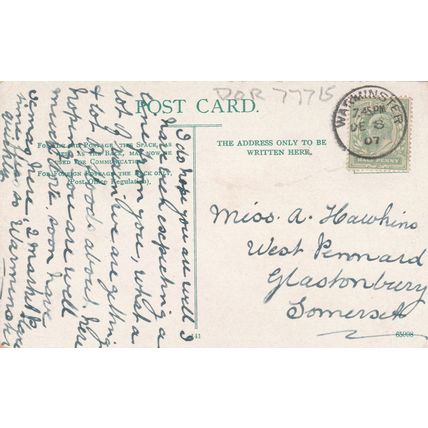 DOR 77715
POST CARD.
WARMINSTER
7.45PM
DE 8
07
HALF PENNY
FOR INLAND POSTAGE THE SPACE, AS
AS THE BACK, MAY NOW BE
USED FOR COMMUNICATION.
FOR FOREIGN POSTAGE THE BACK ONLY,
(Post Office Regulation).
THE ADDRESS ONLY TO BE
WRITTEN HERE.
Miss. A. Hawkins
West Pennard
Glastonbury
Somerset
I do hope you are well I
have been expecting a
line from you, what a
lot of rain we are getting
& lot of floods about, here
hope you are well
much love soon have
market here
times also so Warminster
41
65098